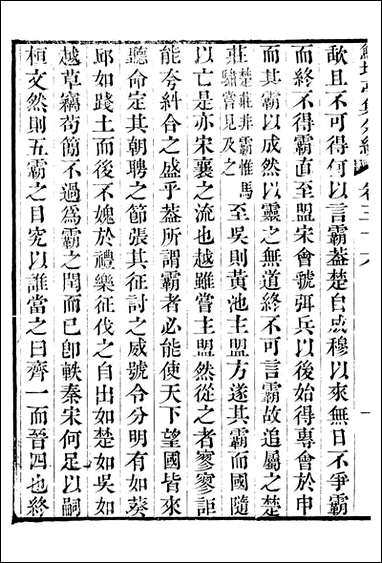 歃且不可得何以言霸蓋楚自成穆以來無日不爭霸
而終不得霸直至盟宋會虢弭兵以後始得專會於申
而其霸以成然以靈之無道終不可言霸故追屬之楚
莊楚莊非霸惟馬驌嘗見及之至吳則黃池主盟方遂其霸而國隨
以亡是亦宋襄之流也越雖嘗主盟然從之者寥寥詎
能夸糾合之盛乎蓋所謂霸者必能使天下望國皆來
聽命定其朝聘之節張其征討之威號令分明有如葵
邱如踐土而後不媿於禮樂征伐之自出如楚如吳如
越草竊苟簡不過爲霸之閏而已卽軼秦宋何足以嗣
桓文然則五霸之目究以誰當之曰齊一而晉四也終